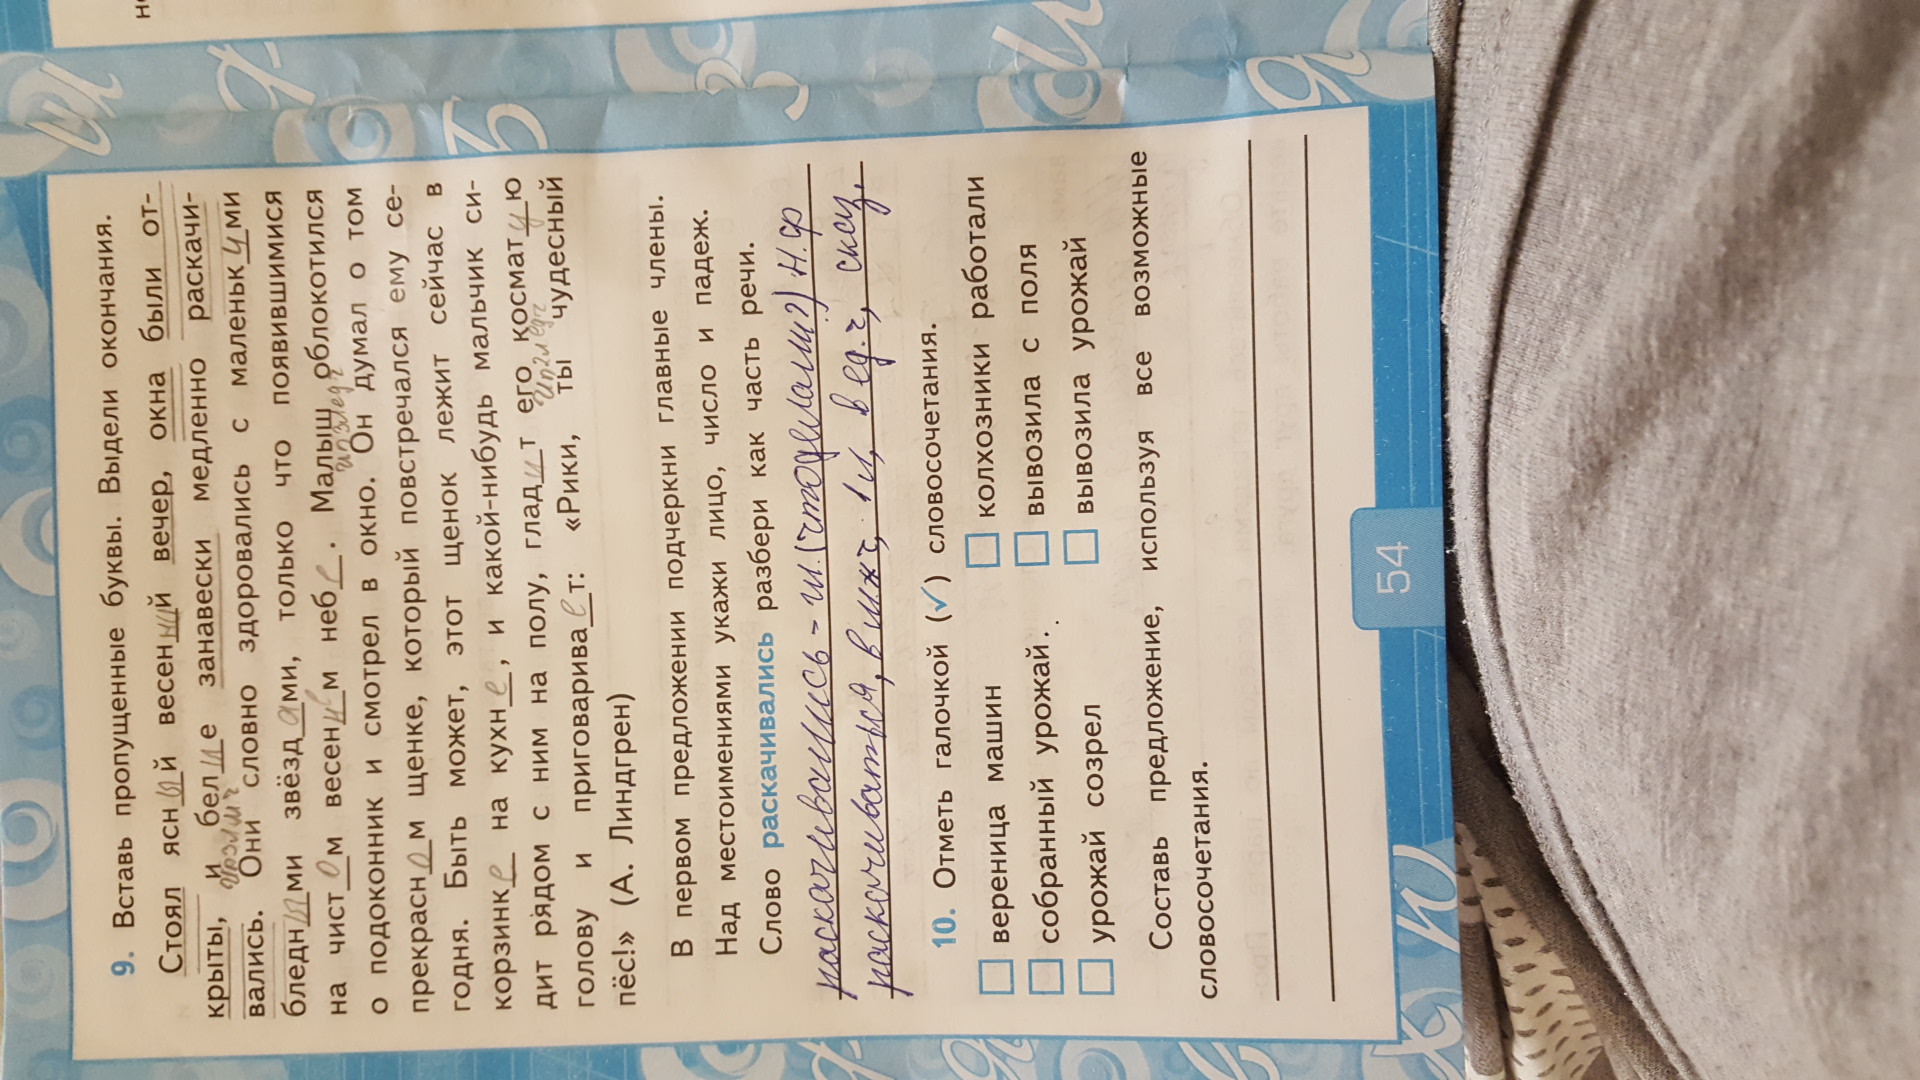 9. Вставь пропущенные буквы. Выдели окончания.
Стоял ясный весенний вечер, окна были от-
крыты, и белые занавески медленно раскачи-
вались. Они словно здоровались с маленькими
бледными звёздами, только что появившимися
на чистом весеннем небе. Малыш облокотился
о подоконник и смотрел в окно. Он думал о том
прекрасном щенке, который повстречался ему се-
годня. Быть может, этот щенок лежит сейчас в
корзинке на кухне, и какой-нибудь мальчик си-
дит рядом с ним на полу, гладит его косматую
голову и приговаривает: «Рики, ты чудесный
пёс!» (А. Линдгрен)
В первом предложении подчеркни главные члены.
Над местоимениями укажи лицо, число и падеж.
Слово раскачивались разбери как часть речи.
раскачивались - (что делали?) Н.ф
раскачиваться, в ед.ч,
10. Отметь галочкой (✓) словосочетания.
вереница машин
колхозники работали
собранный урожай.
вывозила с поля
урожай созрел
вывозила урожай
Составь предложение, используя все возможные
словосочетания.
54